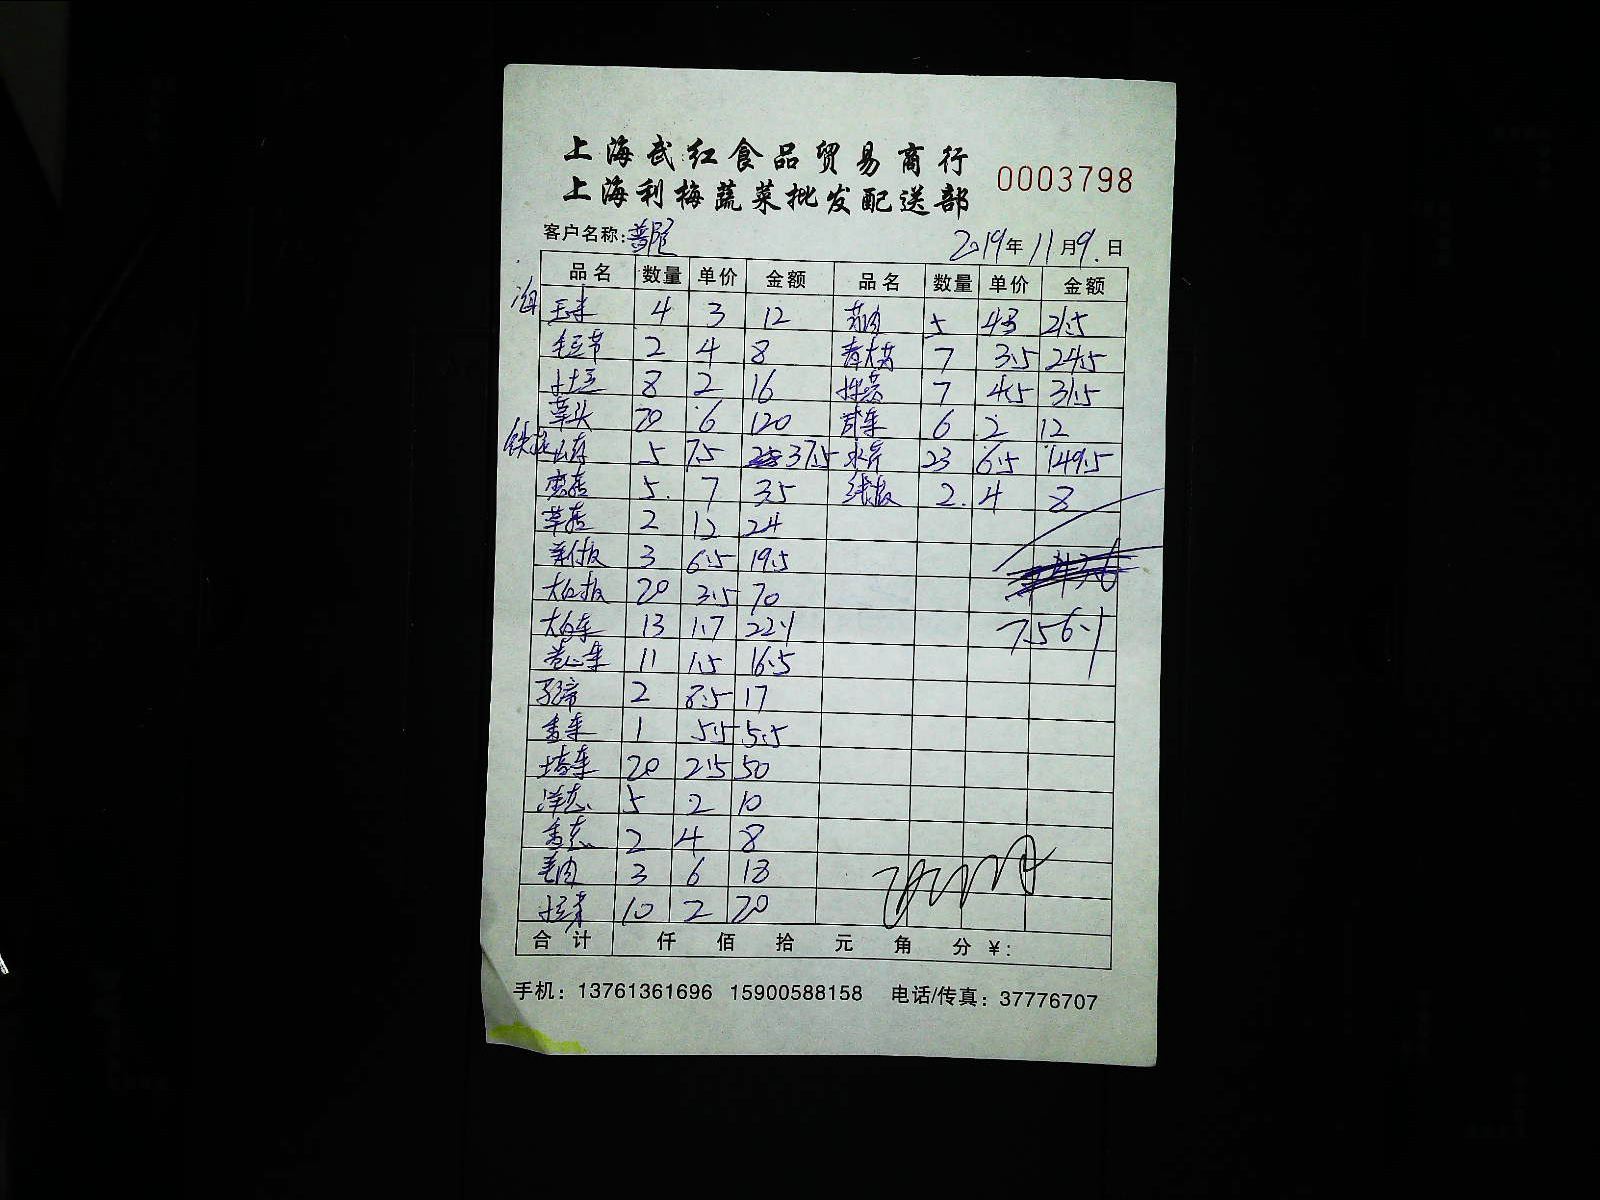 上海武红食品贸易商行
上海利梅蔬菜批发配送部
0003798
客户名称:普陀
2019年11月9.日
品名 数量 单价 金额 品名 数量 单价 金额
玉米 4 3 12 5 4.3 21.5
毛豆节 2 4 8 青大 7 3.5 24.5
小土豆 8 2 16 7 4.5 31.5
草头 20 6 120 6 2 12
铁棍山药 5 7.5 37.5 水芹 23 6.5 149.5
蘑菇 5. 7 35 线椒 2. 4 8
草菇 2 12 24
3 6.5 19.5
大红椒 20 3.5 70
756.1
大白菜 13 1.7 22.1
卷心菜 11 1.5 16.5
2 8.5 17
香菜 1 5.5 5.5
塔菜 20 2.5 50
洋葱 5 2 10
香葱 2 4 8
毛肉 3 6 18
小豆芽 10 2 20
合计 仟 佰 拾 元 角 分 ¥:
手机：13761361696 15900588158 电话/传真：37776707